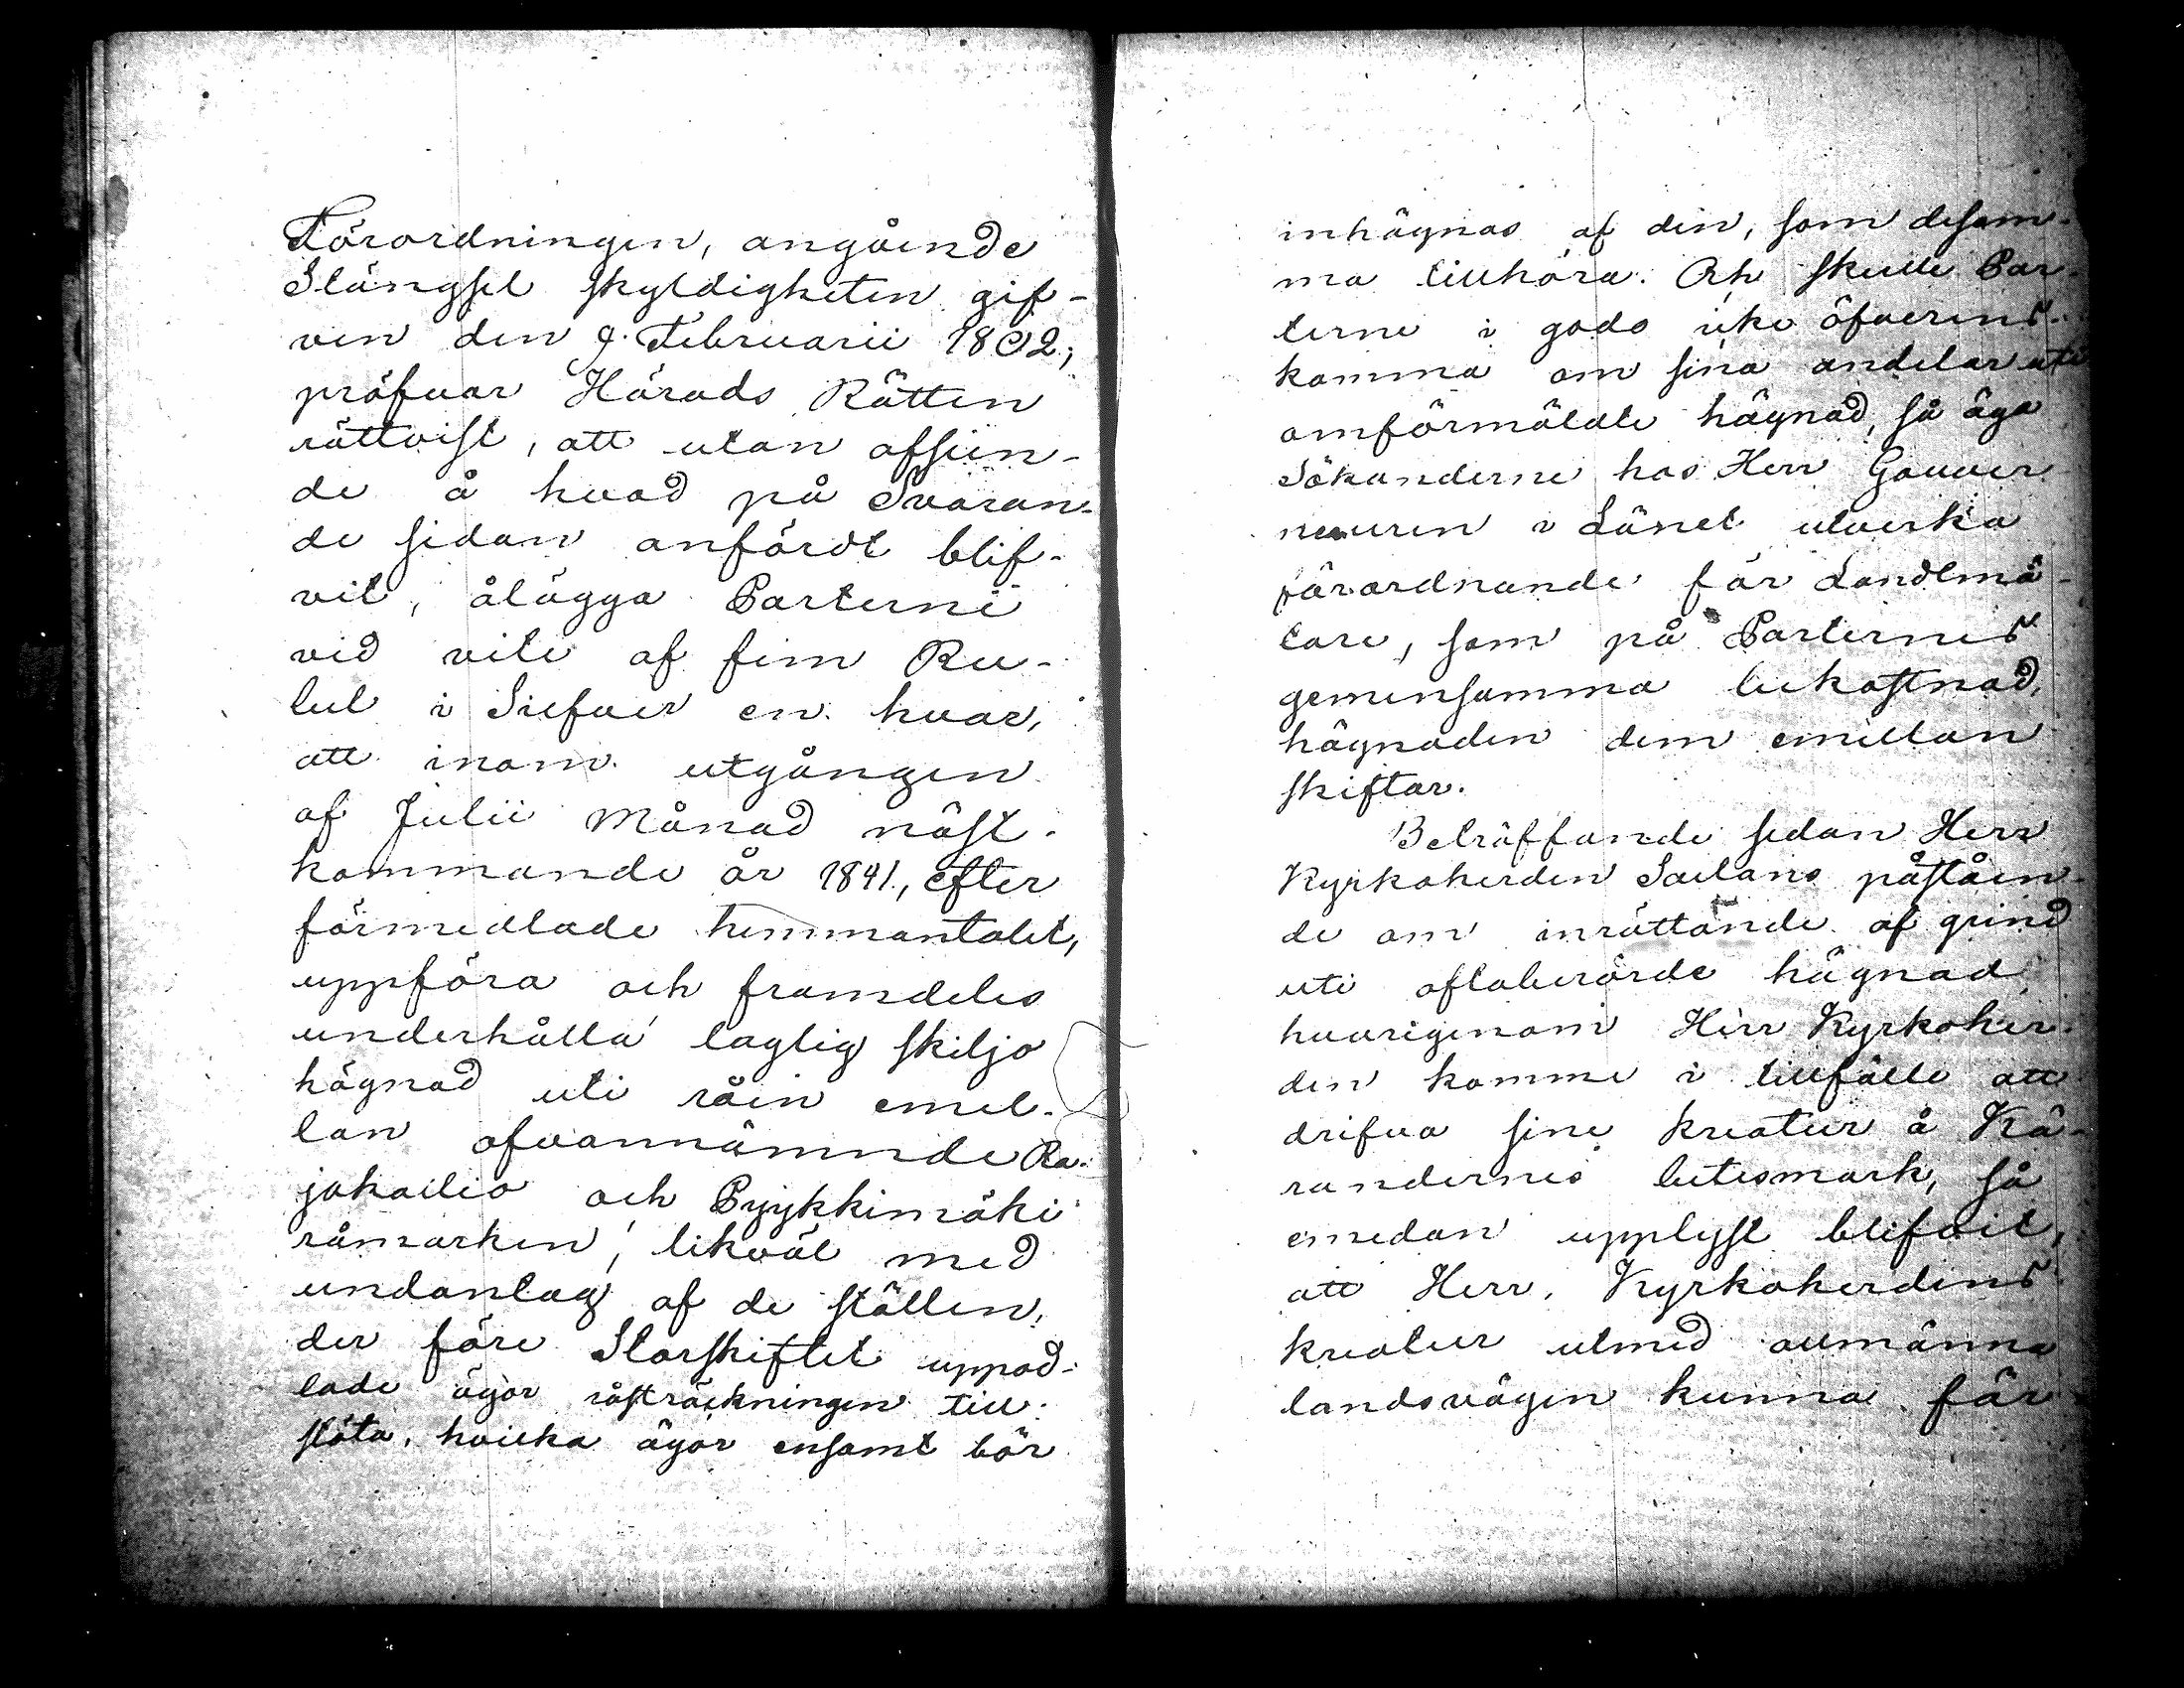 Förordningen, angående
Stängsel skyldigheten gif-
ven den 9. Februarii 1802,
pröfvar Härads Rätten
rättvist, att utan afseen-
de å hvad på Svaran-
de sidan anfördt blif-
vit, ålägga Parterne
vid vite af fem Ru-
bel i Silfver en hvar,
att inom utgången
af Julii Månad näst-
kommande år 1841, efter
förmedlade hemmantalet,
uppföra och framdeles
underhålla laglig skiljo
hägnad uti råen emel-
lan ofvannämnde Ra-
jakailio och Pyykkimäki
råmarken, likväl med
undantag af de ställen,
der före Storskiftet uppod-
lade ägor råsträckningen till-
stöta, hvilka ägor ensamt bör
inhägnas af den, som desam-
ma tillhöra. Och skulle Par-
terne i godo icke öfverens-
komma om sina andelar uti
omförmälde hägnad, så äga
Sökanderne hos Herr Gouver-
neuren i Länet utverka
förordnande för Landtmä-
tare, som på Parternes
gemensamma bekostnad,
hägnaden dem emellan
skiftar.
Beträffande sedan Herr
Kyrkoherden Sailans påståen-
de om inrättande af grind
uti oftaberörde hägnad
hvarigenom Herr Kyrkoher-
den komme i tillfälle att
drifva sine kreatur å Kä-
randernes betesmark, så
emedan upplyst blifvit,
att Herr Kyrkoherdens
kreatur utmed allmänna
landsvägen kunna för